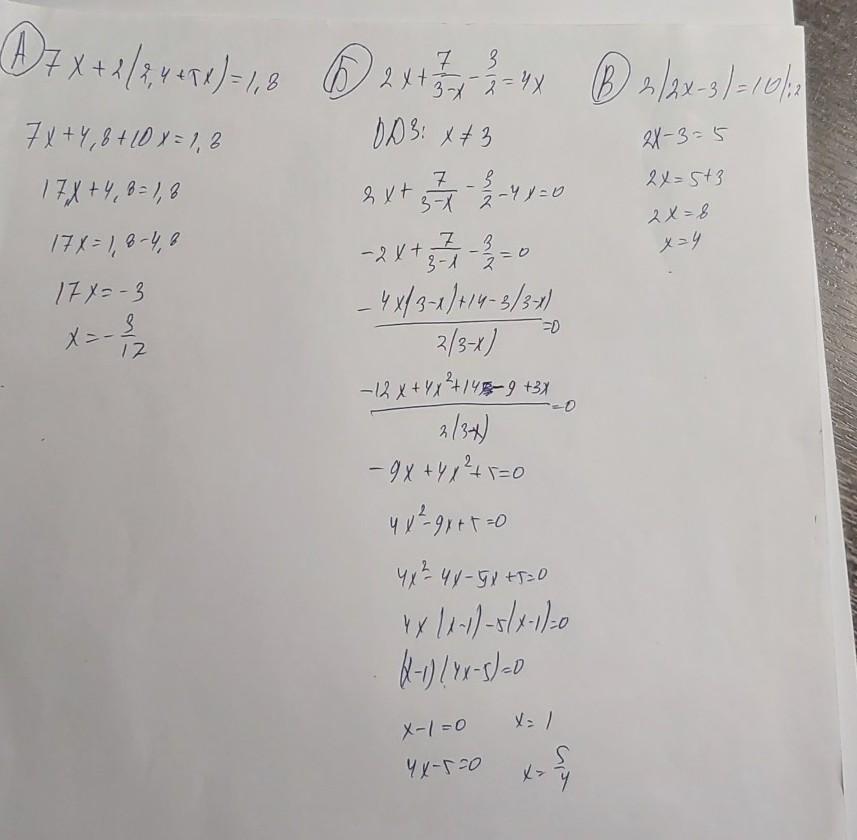 А 7x+2(2,4+5x)=1,8
7x+4,8+10x=1,8
17x+4,8=1,8
17x=1,8-4,8
17x=-3
x=-3/17
Б 2x+7/(3-x)-3/2=4x
ОДЗ: x≠3
2x+7/(3-x)-3/2-4x=0
-2x+7/(3-x)-3/2=0
(-4x(3-x)+14-3(3-x))/(2(3-x))=0
(-12x+4x²+14-9+3x)/(2(3-x))=0
-9x+4x²+5=0
4x²-9x+5=0
4x²-4x-5x+5=0
4x(x-1)-5(x-1)=0
(x-1)(4x-5)=0
x-1=0 x=1
4x-5=0 x=5/4
В 2(2x-3)=10|:2
2x-3=5
2x=5+3
2x=8
x=4